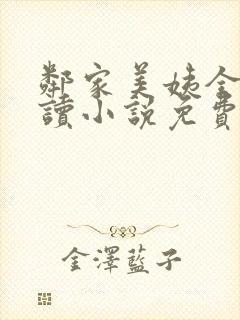 鄰家美姨全
讀小說免費
金澤藍子